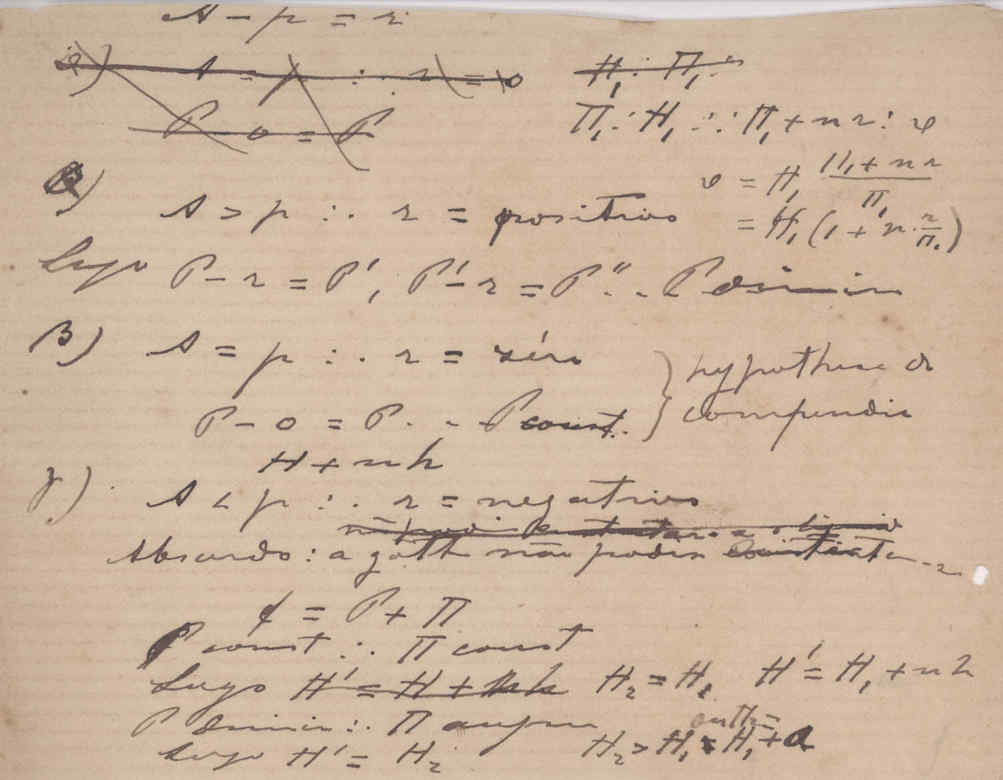 A - p = r
α) A = p ∴ r = 0
P - 0 = P
H₁ : Π₁ ::
Π₁ : H₁ :: Π₁ + n r : φ
φ = H₁ (Π₁ + n r)/Π₁
= H₁ (1 + n · r/Π₁)
α) A > p ∴ r = positivo
Logo P - r = P', P' - r = P'' . . P dimin
β) A = p ∴ r = zéro
P - 0 = P . . P const.
} hypothese do compendio
H + n h
γ) A < p ∴ r = negativo
Absurdo : a gotta não podia
¢ = P + Π
P const ∴ Π const
Logo H' = H + n h H₂ = H₁ H' = H₁ + n h
P dimin ∴ Π augm
Logo H' = H₂ H₂ > H₁ = H₁ + a